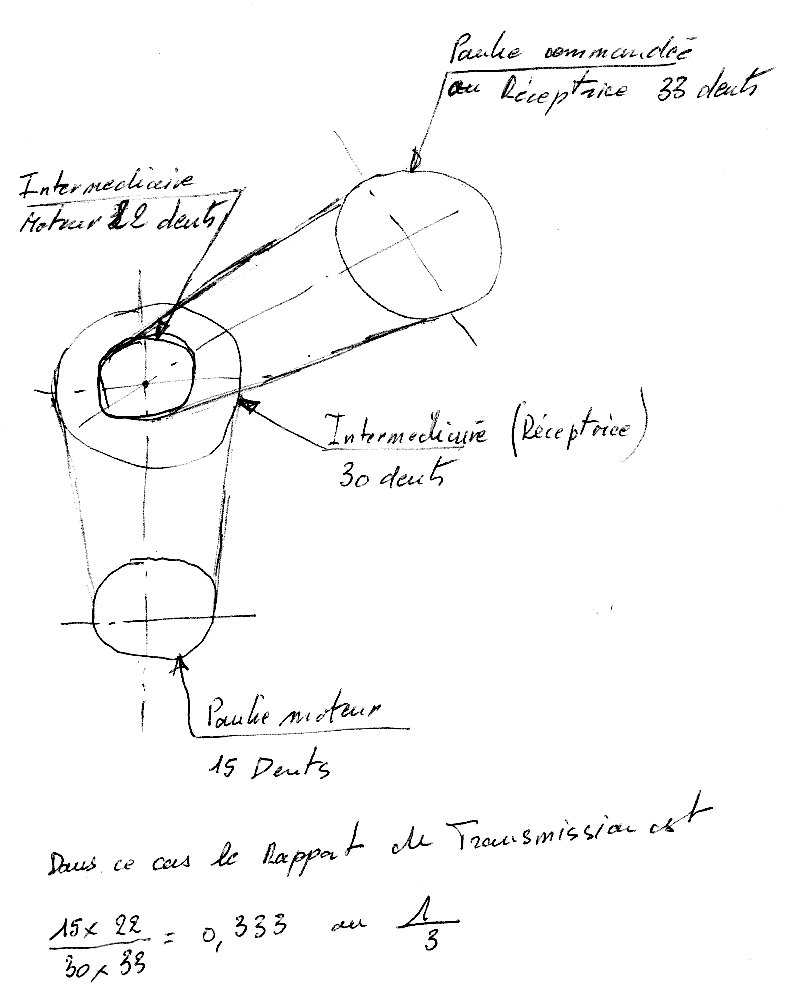 Poulie commandée
ou Réceptrice 33 dents
Intermediaire
Moteur 22 dents
Intermediaire (Réceptrice)
30 dents
Poulie moteur
15 Dents
Dans ce cas le Rapport de Transmission est
15 x 22 / 30 x 33 = 0,333 ou 1/3